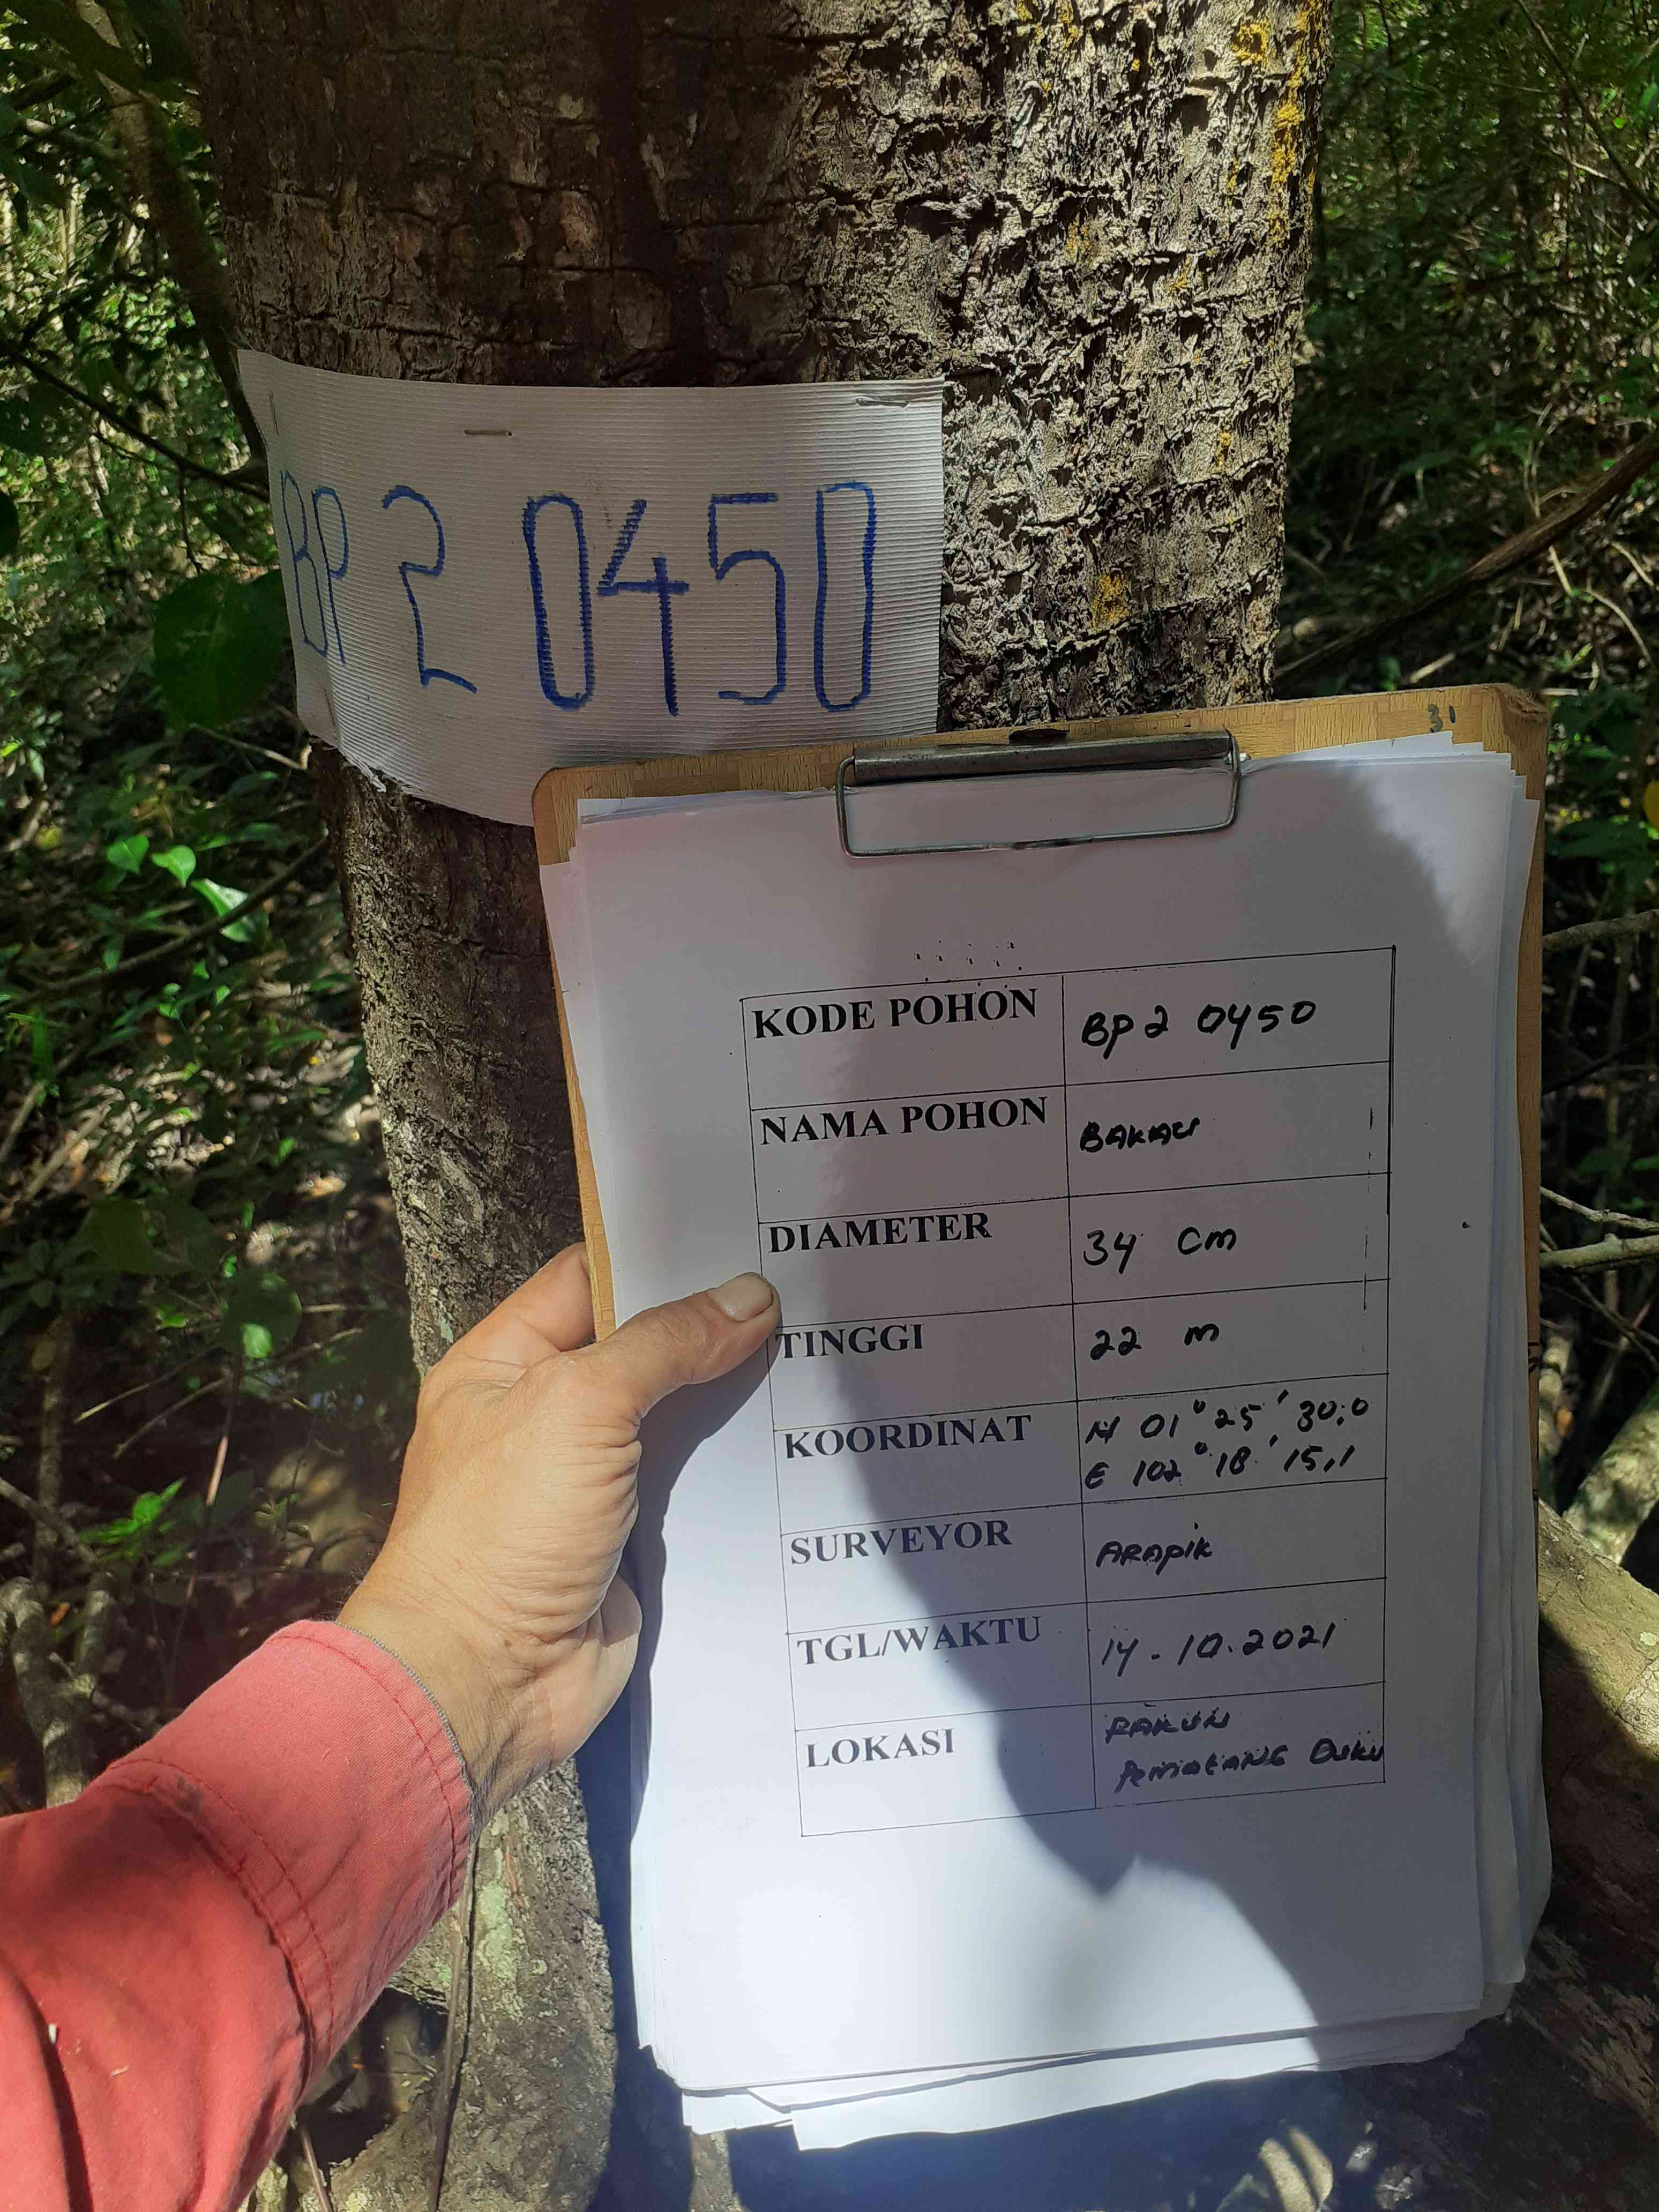 BP 2 0450
31
KODE POHON BP2 0450
NAMA POHON BAKAU
DIAMETER 34 cm
TINGGI 22 m
KOORDINAT N 01° 25' 30,0
E 102° 18' 15,1
SURVEYOR ARAPIK
TGL/WAKTU 14-10-2021
LOKASI
PEMATANG DUKU